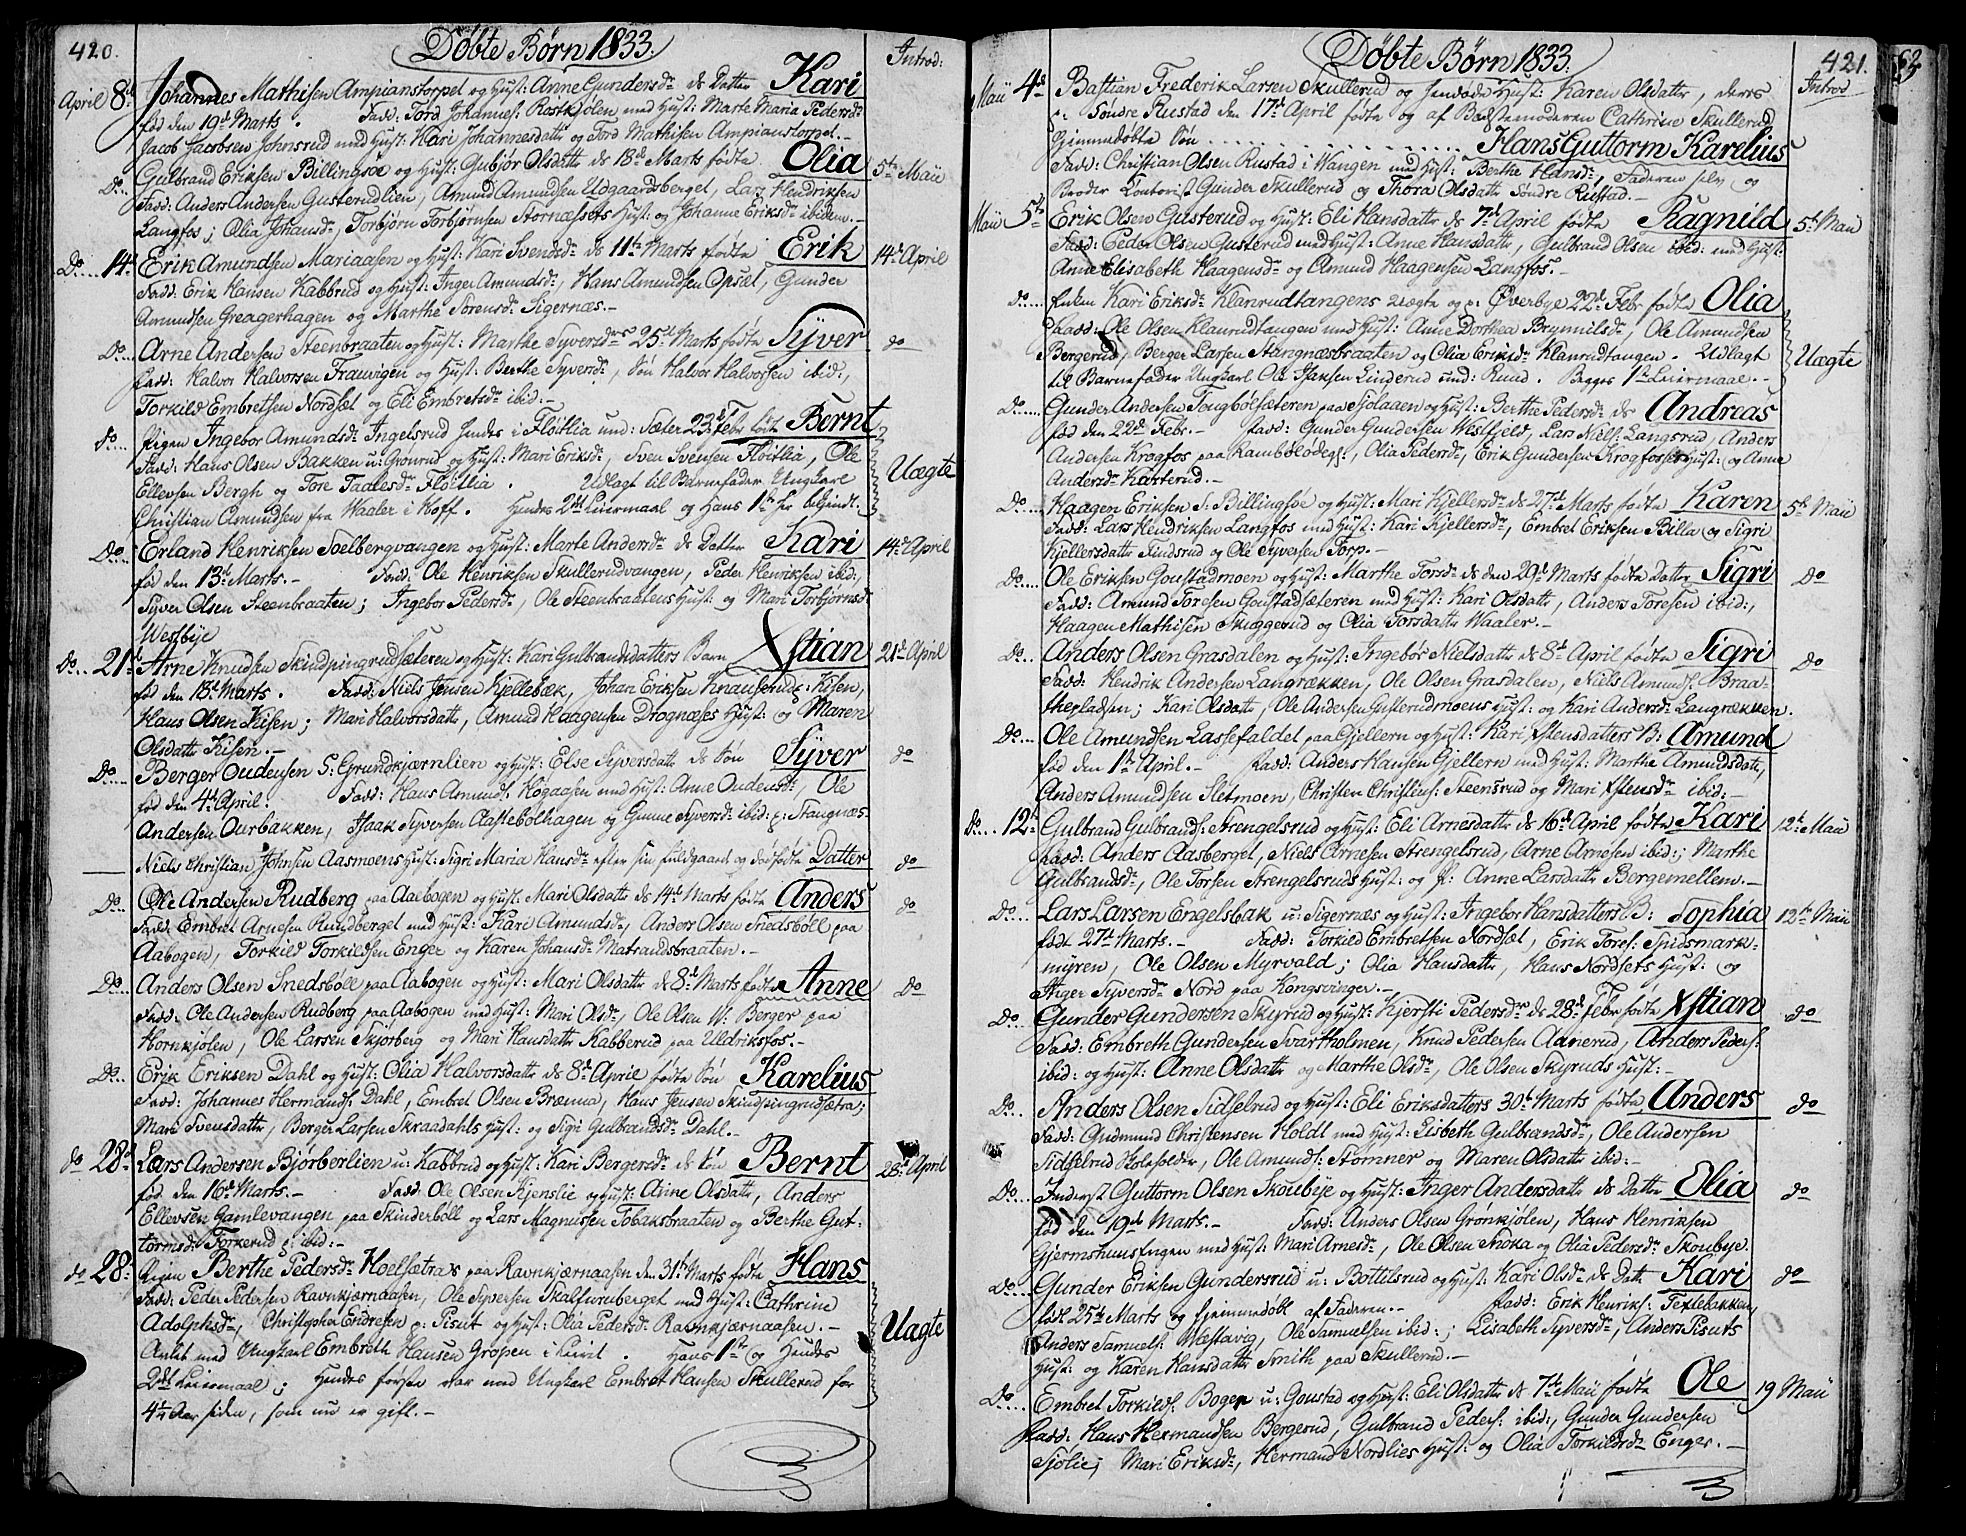 420. Döbte Börn 1833. Introd:
April 8d Johannes Mathisen Ampianstorpet og Hust: Anne Gundersdr ds Datter Kari
fød den 19d Marts. Fadd: Tord Johannes: Rastkjölen med Hust: Marte Maria Pedersdr
Jacob Jacobsen Johnsrud med Hust: Kari Johannesdattr og Tord Mathisen Ampianstorpet.-
Do Gulbrand Eriksen Billingsöe og Hust: Gubjör Olsdattr ds 18d Marts födte Olia 5te Maii
Fadd: Anders Andersen Gusterudlien, Amund Amundsen Udgaardsberget, Lars Hendriksen
Langfos; Olia Johansdr, Torbjörn Torbjörnsen Stornæssets Hust: og Johanne Eriksdr ibidem.-
Do.... 14d Erik Amundsen Mariaasen og Hust: Kari Svendsdr ds 11te Marts födte Erik 14d April
Fadd: Erik Hansen Kabbrud og Hust: Inger Amundsdr, Hans Amundsen Opsæt, Gunder
Amundsen Greagerhagen og Marthe Sorensdr Sigernæs.-
Do... Arne Andersen Steenbraaten og Hust: Marthe Syversdrs 25d Marts födte Syver do
Fadd: Halvor Halvorsen Frauvigen og Hust: Berthe Syversdr, Sön Halvor Halvorsen ibid:,
Torkild Embretsen Nordsæt og Eli Embretsdr ibid:-
Do. Pigen Ingebor Amundsdr Ingelsrud hendes i Flöitlia und: Sæter 23d Febr: födte Bernt
Fadd: Hans Olsen Bakken u: Gronrud og Hust: Mari Eriksdr, Sven Svensen Flöitlia, Ole Uægte
Ellevsen Bergh og Tore Taalesdr Flöitlia. Udlagt til Barnefader Ungkarl
Christian Amundsen fra Waaler i Hoff. Hendes 2det Leiermaal og Hans 1te her bekjendt.
Do.... Erland Henriksen Soelbergvangen og Hust: Marte Andersdr ds Datter Kari 14d April
fød den 13d Marts.- Fadd: Ole Henriksen Skullerudvangen, Peder Henriksen ibid:
Syver Olsen Steenbraaten; Ingebor Pedersdr, Ole Steenbraatens Hust: og Mari Torbjörnsdr
Westbye
Do... 21d Arne Knudsen Skindpingrudsæteren og Hust: Kari Gulbrandsdatters Barn Xstian 21d April
fød den 18d Marts. Fadd: Niels Jensen Kjellebæk, Johan Eriksen Knauserud p: Kisen,
Hans Olsen Kisen; Mari Halvorsdattr, Amund Haagensen Drognæses Hust: og Maren
Olsdattr Kisen.-
Do... Berger Oudensen S: Grundkjærnlien og Hust: Else Syversdattr ds Sön Syver do
fød den 4d April. Fadd: Hans Amunds: Högaasen med Hust: Anne Oudensdr, Ole
Andersen Ourbakken, Isaak Syversen Aastebölhagen og Gunne Syversdr ibid: p: Stangnæs-
Niels Christian Johnsen Aasmoens Hust: Sigri Maria Hansdr efter sin fuldgaaede og dødfødte Datter do
Do.. Ole Andersen Rudberg paa Aabogen og Hust: Mari Olsdattr ds 14d Marts födte Anders do
Fadd: Embret Arnesen Rundberget med Hust: Kari Amundsdr, Anders Olsen Snedsböll paa
Aabogen, Torkild Torkildsen Enger og Karen Johansdr Matrandsbraaten.-
Do... Anders Olsen Snedsböll paa Aabogen og Hust: Mari Olsdattr ds 8d Marts födte Anne Do
Fadd: Ole Andersen Rudberg paa Aabogen med Hust: Mari Olsdr, Ole Olsen N: Berger paa
Hornkjölen, Ole Larsen Skjörberg og Mari Hansdattr Kabberud paa Uldriksfos.-
Do... Erik Eriksen Dahl og Hust: Olia Halvorsdattr ds 8d April födte Sön Karelius
Fadd: Johannes Hermands: Dahl, Embret Olsen Brænna, Hans Jensen Skindpingrudsætra;
Mari Svensdattr, Berger Larsen Skraadahls Hust: og Sigri Gulbrandsdr Dahl.-
do 28d Lars Andersen Bjørberlien u: Kabbrud og Hust: Kari Bergersdr ds Sön Bernt 28d April
fød den 16d Marts.- Fadd: Ole Olsen Kjenslie og Hust: Anne Olsdattr, Anders
Ellevsen Gamlevangen paa Skinderböll og Lars Magnussen Tobaksbraaten og Berthe Gut-
tormsdr Torkerud p: ibid:-
do 28d Pigen Berthe Pedersdr Hoelsætras paa Ravnkjærnaasen den 31te Marts födte Hans
Fadd: Peder Pedersen Ravnkjærnaasen, Ole Syversen Skalfuruberget med Hust: Cathrine
Adolphsdr, Christopher Endresen p: Pisut og Hust: Olia Pedersdr Ravnkjærnaasen.- Uægte
Anlet med Ungkarl Embreth Hansen Gropen i Lunt. Hans 1te og Hendes
2det Leiermaal; Hendes förste var med Ungkarl Embret Hansen Skullerud for
4½ Aar siden, som nu er gift.-
Döbte Börn 1833. 421. Introd
Maii 4de Bastian Frederik Larsen Skullerud og hendøde Hust: Karen Olsdattr, deres
p: Söndre Rustad den 17d April födte og af Bedstemoderen Cathrine Skullerud
hjemmedöbte Sön .......... Hans Guttorm Karelius
Fadd: Christian Olsen Rustad i Wangen med Hust: Berthe Hansdr, Faderen selv og
Broder Contorist Gunder Skullerud og Thora Olsdattr Söndre Rustad.-
Maii 5te Erik Olsen Gusterud og Hust: Eli Hansdattr ds 7d April födte Ragnild 5te Maii
Fadd: Peder Olsen Gusterud med Hust: Anne Hansdattr, Gulbrand Olsen ibid: med Hust:
Anne Elisabeth Haagensdr og Amund Haagensen Langfos.-
do.... Enken Kari Eriksdr Klanrudtangens uægte og p: Øverbye 22d Febr födte Olia
Fadd: Ole Olsen Klanrudtangen med Hust: Anne Dorthea Brynnilsdr, Ole Amundsen
Bergerud, Berger Larsen Stangnæsbraaten og Olia Eriksdr Klanrudtangen. Udlagt Uægte
til Barnefader Ungkarl Ole Isaksen Linderud und: Ruud. Begges 1te Leiermaal.-
Do..... Gunder Andersen Tougbölsæteren paa Sjölaaen og Hust: Berthe Pedersdr ds Andreas
fød den 22d Febr.- Fadd: Gunder Gundersen Westkjeld, Lars Niels: Langsrud, Anders
Andersen Krogfos paa Ramsölödegd:, Olia Pedersdr, Erik Gundersen Krogfosset Hust: og Anne
Andersdr Karterud.-
Do.... Haagen Eriksen S: Billingsöe og Hust: Mari Kjellersdr ds 27d Marts födte Karen 5te Maii
Fadd: Lars Hendriksen Langfos med Hust: Kari Kjellersdr, Embret Eriksen Billa og Sigri
Kjellersdattr Findsrud og Ole Syversen Torp.-
Do.... Ole Eriksen Goustadmoen og Hust: Marthe Torsdr ds den 29d Marts födte Datter Sigri Do
Fadd: Amund Toresen Goustadsæteren med Hust: Kari Olsdattr, Anders Toresen ibid:,
Haagen Mathisen Skuggerud og Olia Torsdattr Waaler.-
Do... Anders Olsen Grasdalen og Hust: Ingebör Nielsdattr ds 8d April födte Sigri Do
Fadd: Hendrik Andersen Langrækken, Ole Olsen Grasdalen, Niels Amunds: Braa-
thepladsen; Kari Olsdattr, Ole Andersen Gusterudmoens Hust: og Kari Andersdr Langrækken.
Do... Ole Amundsen Lassefaldet paa Gjellern og Hust: Kari Xstensdatters B: Amund
fød den 1te April.- Fadd: Anders Hansen Gjellern med Hust: Marthe Amundsdattr,
Anders Amundsen Sletmoen, Christen Christens: Steensrud og Mari Xstensdr ibid:-
Do.... 12te Gulbrand Gulbrands: Strengelsrud og Hust: Eli Arnesdattr ds 16d April födte Kari 12te Maii
Fadd: Anders Aasberget, Niels Arnesen Strengelsrud, Arne Arnesen ibid:; Marthe
Gulbrandsdr, Ole Torsen Strengelsruds Hust: og P: Anne Larsdattr Borgemellem.-
Do... Lars Larsen Engelsbak u: Sigernæs og Hust: Ingebor Hansdatters B: Sophia 12te Maii
födt 27d Marts.- Fadd: Torkild Embretsen Nordsæt, Erik Tores: Spidsmark-
myren, Ole Olsen Myrvald; Olia Hansdattr, Hans Nordsets Hust: og
Inger Syversdr Nord paa Kongsvinger.-
Do... Gunder Gundersen Skyrud og Hust: Kjersti Pedersdrs ds 28d Febr födte Xstian do
Fadd: Embreth Gundersen Svartholmen, Knud Pedersen Aanerud, Anders Peders:
ibid: og Hust: Anne Olsdattr og Marthe Olsdr, Ole Olsen Skyruds Hust:-
Do.. Anders Olsen Sidselrud og Hust: Eli Eriksdatters 30d Marts födte Anders do
Fadd: Gudmund Christensen Holdt med Hust: Lisbeth Gulbrandsdr, Ole Andersen
Sidselrud Skoleholder, Ole Amunds: Stomner og Maren Olsdattr ibid:-
Do.... Inderst Guttorm Olsen Skoubye og Hust: Inger Andersdattr ds Dattr Olia do
fød den 19d Marts.- Fadd: Anders Olsen Grönkjölen, Hans Henriksen
Gjermshuusengen med Hust: Mari Arnesdr, Ole Olsen Stoka og Olia Pedersdr Skoubye.
Do.... Gunder Eriksen Gundersrud u: Bottilsrud og Hust: Kari Olsdr ds Datt: Kari do
födt 25te Marts og hjemmedöbt af Faderen.- Fadd: Erik Henriks: Textebakken,
Anders Samuels: Wæstavig, Ole Samuelsen ibid:; Lisabeth Syversdr, Anders Pisuts
Hust: og Karen Hansdattr Smith paa Skullerud.-
Do.... Embret Torkilds: Bogen u: Goustad og Hust: Eli Olsdattr ds 7te Maii födte Ole 19 Maii
Fadd: Hans Hermandsen Bergerud, Gulbrand Peders: ibid:, Gunder Gundersen
Sjölie; Mari Eriksdr, Hermand Nordlies Hust: og Olia Torkildsdr Enger.-